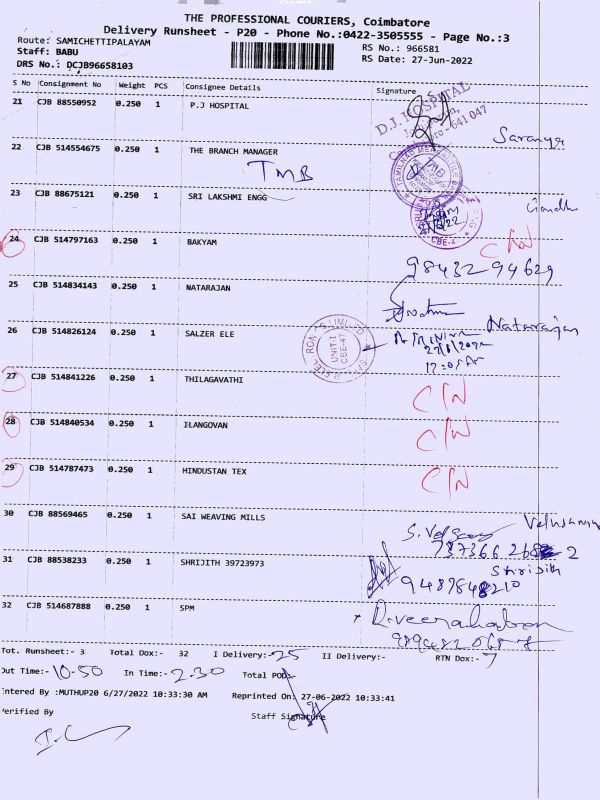 THE PROFESSIONAL COURIERS, Coimbatore
Delivery Runsheet - P20 - Phone No.:0422-3505555 - Page No.:3
Route: SAMICHETTIPALAYAM RS No.: 966581
Staff: BABU RS Date: 27-Jun-2022
DRS No.: DCJB96658103
S No Consignment No Weight PCS Consignee Details Signature
21 CJB 88550952 0.250 1 P.J HOSPITAL
D.J. HOSPITAL
641 047
Saranya
22 CJB 514554675 0.250 1 THE BRANCH MANAGER
TMB
23 CJB 88675121 0.250 1 SRI LAKSHMI ENGG
CBE-4
24 CJB 514797163 0.250 1 BAKYAM C/N
98432 94629
25 CJB 514834143 0.250 1 NATARAJAN
Natarajan
26 CJB 514826124 0.250 1 SALZER ELE
UNIT-I
CBE-47
27 CJB 514841226 0.250 1 THILAGAVATHI C/N
28 CJB 514840534 0.250 1 ILANGOVAN C/N
29 CJB 514787473 0.250 1 HINDUSTAN TEX C/N
30 CJB 88569465 0.250 1 SAI WEAVING MILLS
31 CJB 88538233 0.250 1 SHRIJITH 39723973 Shrijith
32 CJB 514687888 0.250 1 SPM
Tot. Runsheet:- 3 Total Dox:- 32 I Delivery:- 25 II Delivery:- RTN Dox:- 7
Out Time:- 10-50 In Time:- 2.30 Total POD:-
Entered By :MUTHUP20 6/27/2022 10:33:30 AM Reprinted On: 27-06-2022 10:33:41
Verified By Staff Signature